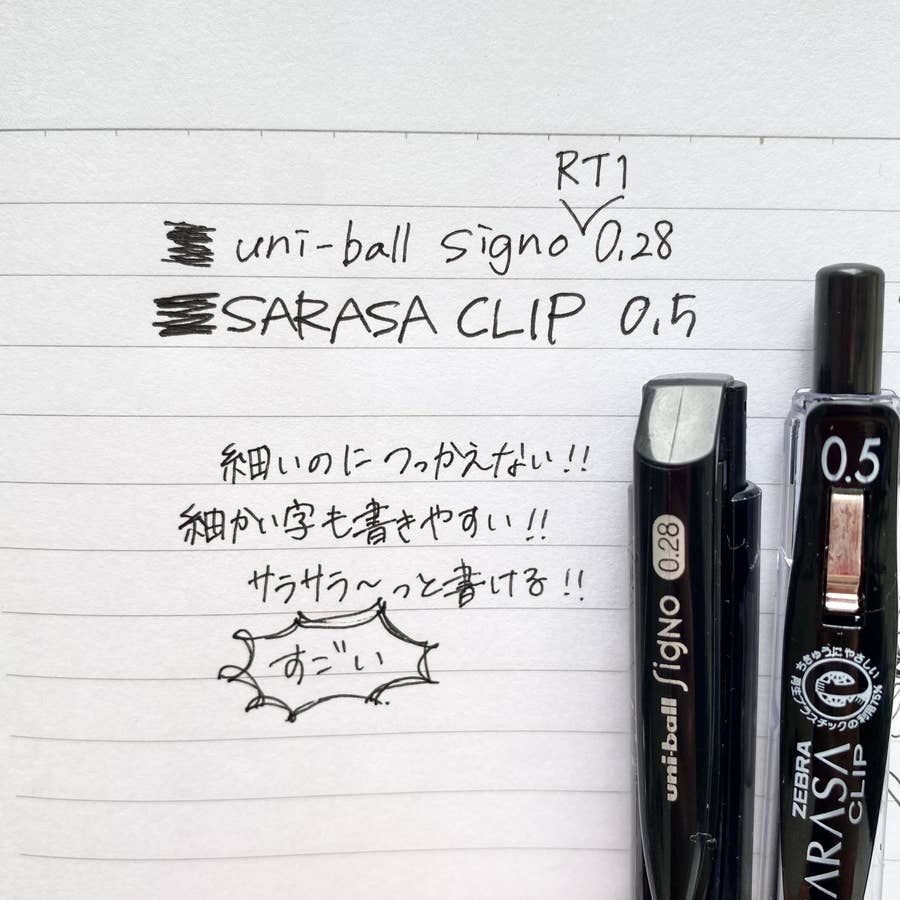 RT1
uni-ball signo 0.28
SARASA CLIP 0.5
細いのにつっかえない!!
細かい字も書きやすい!!
サラサラ〜っと書ける!!
すごい
uni-ball SigNO 0.28
0.5
ちきゅうにやさしい
再生プラスチックの利用75%
ZEBRA
ARASA
CLIP